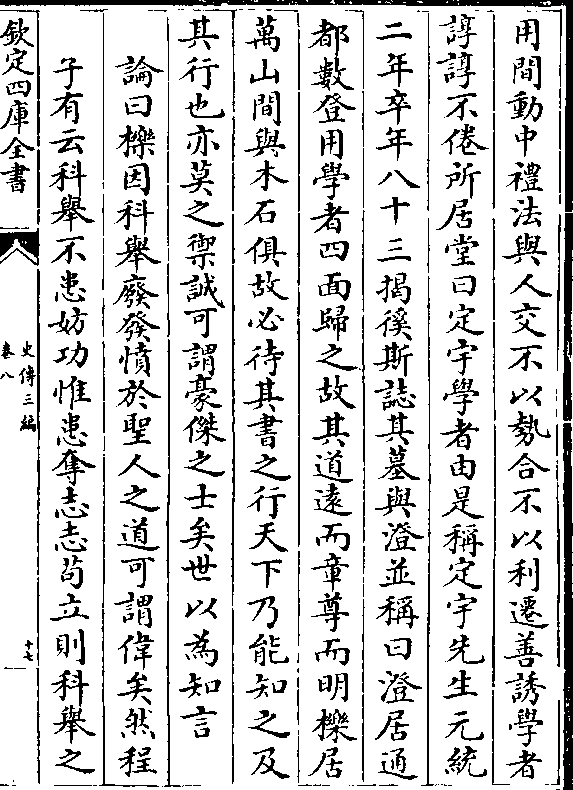 用間動中禮法與人交不以勢合不以利遷善誘學者
諄諄不倦所居堂曰定宇學者由是稱定宇先生元統
二年卒年八十三揭徯斯誌其墓與澄並稱曰澄居通
都數登用學者四面歸之故其道遠而章尊而明櫟居
萬山間與木石俱故必待其書之行天下乃能知之及
其行也亦莫之禦誠可謂豪傑之士矣世以為知言
論曰櫟因科舉廢發憤於聖人之道可謂偉矣然程
子有云科舉不患妨功惟患奪志志苟立則科舉之
欽定四庫全書
史傳三編
卷八
十七